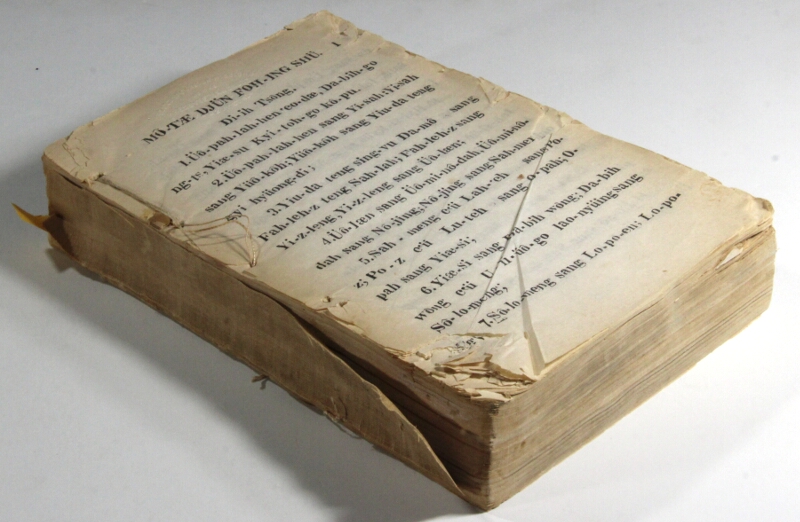 MÔ-T'Æ DJÜN FOH-ING SHÜ. 1
Di-ih Tsông.
1. Üô-pah-lah-hen 'eo-dæ, Da-bih-go
ng-r', Yiæ-su Kyi-toh-go kô-pu.
2. Üô-pah-lah-hen sang Yi-sah; Yi-sah
sang Yüô-koh; Yüô-koh sang Yiu-da teng
gyi hyüong-di;
3. Yiu-da teng sing-vu Da-mô sang
Fah-leh-z teng Sah-lah; Fah-leh-z sang
Yi-z-leng; Yi-z-leng sang Üô-len:
4. Üô-læn sang Üô-mi-nô-dah, Üô-mi-nô-
dah sang Nô-jing; Nô-jing sang Sah-meng
5. Sah-meng c'ü Lah-eh sang Pô-
z; Po-z c'ü Lu-teh sang O-pah; O-
pah sang Yiæ-si;
6. Yiæ-si sang Da-bih wông; Da-bih
wông c'ü U-li-üô-go lao-nyüing sang
Sô-lo-meng;
7. Sô-lo-meng sang Lo-po-en; Lo-po-